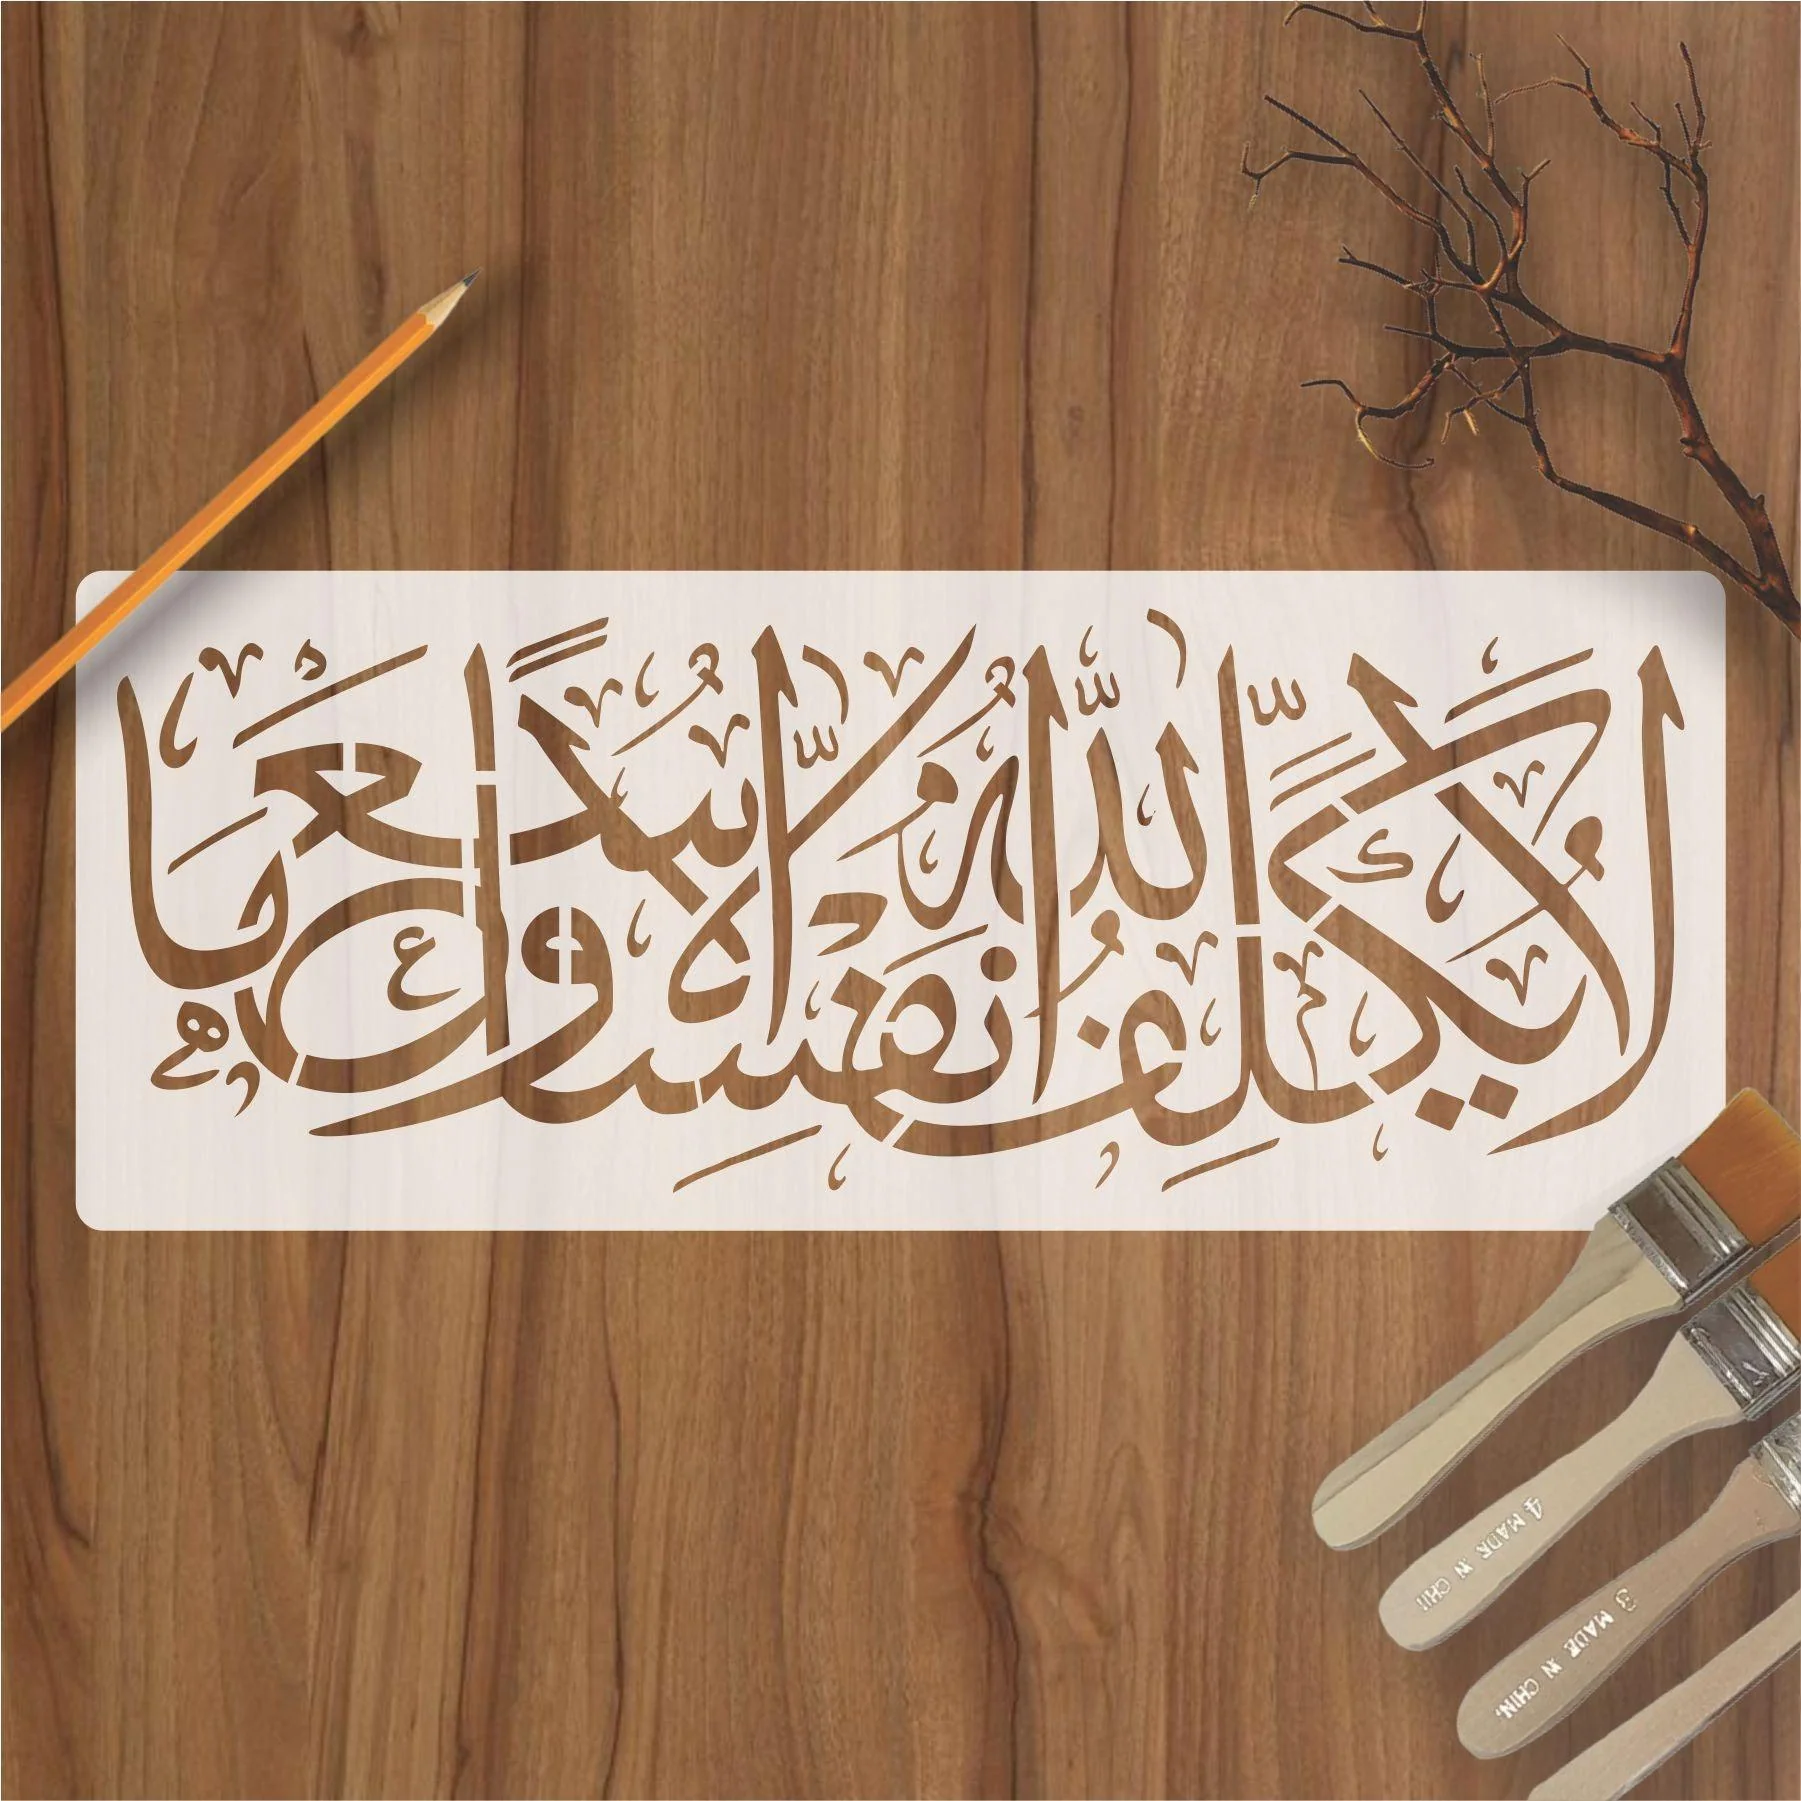 لَا يُكَلِّفُ اللَّهُ نَفْسًا إِلَّا وُسْعَهَا
4 MADE IN CHI
3 MADE IN CHIN.